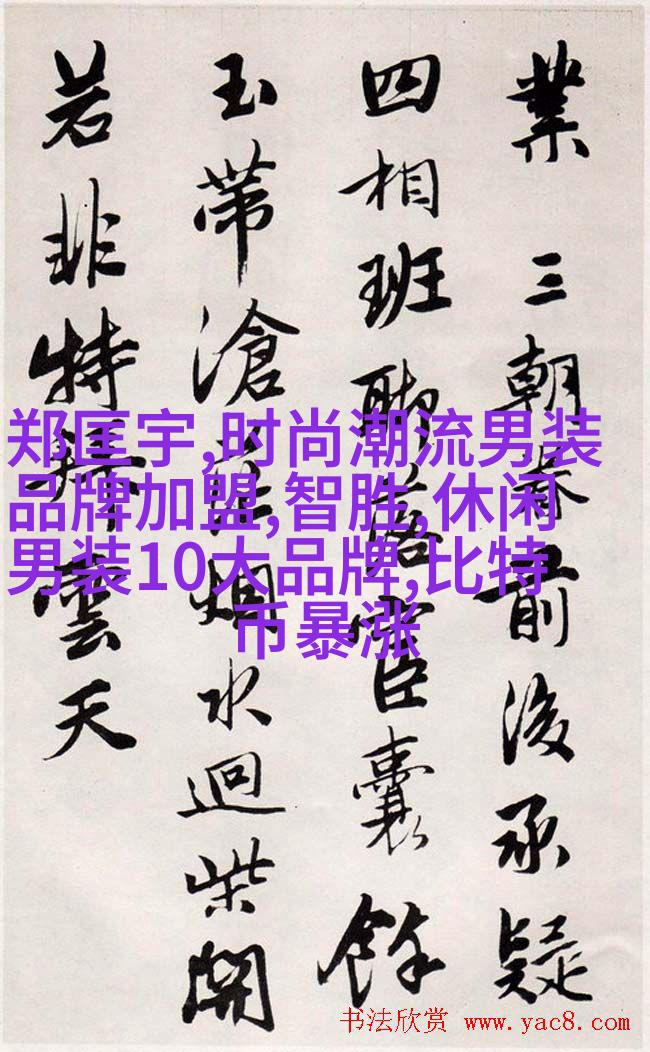 業 三朝前後承疑
四相班聯落宦囊餘
玉帶滄江烟水迴柴開
若非特雲天
郑匡宇,时尚潮流男装
品牌加盟,智胜,休闲
男装10大品牌,比特
币暴涨
书法欣赏 www.yac8.com